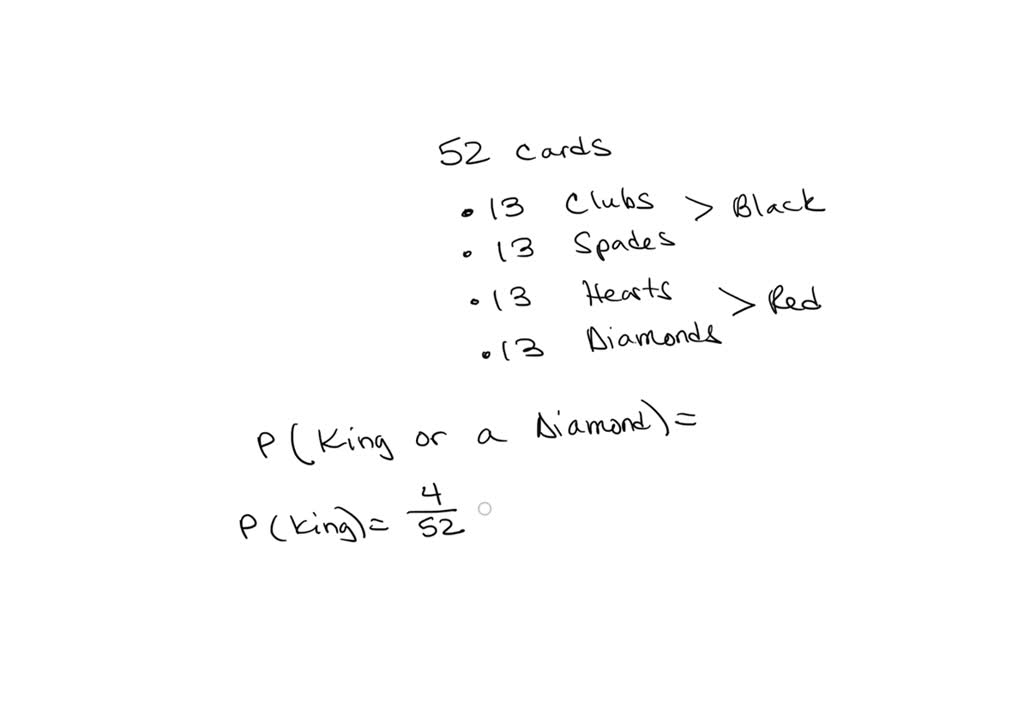 52 cards
• 13 Clubs > Black
• 13 Spades
• 13 Hearts > Red
• 13 Diamonds
P(King or a Diamond) =
P(King) = 4/52